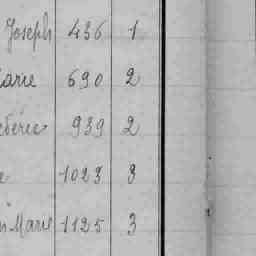 Joseph 436 1
Marie 690 2
939 2
1023 3
Marie 1125 3